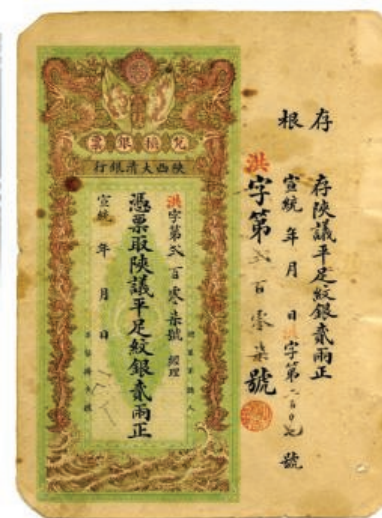 存根
存陝議平足紋銀貳兩正
宣統 年 月 日 洪字第二百〇七號
洪字第貳百零柒號
兌換銀票
陝西大清銀行
洪字第貳百零柒號 經理
憑票取陝議平足紋銀貳兩正
宣統 年 月 日